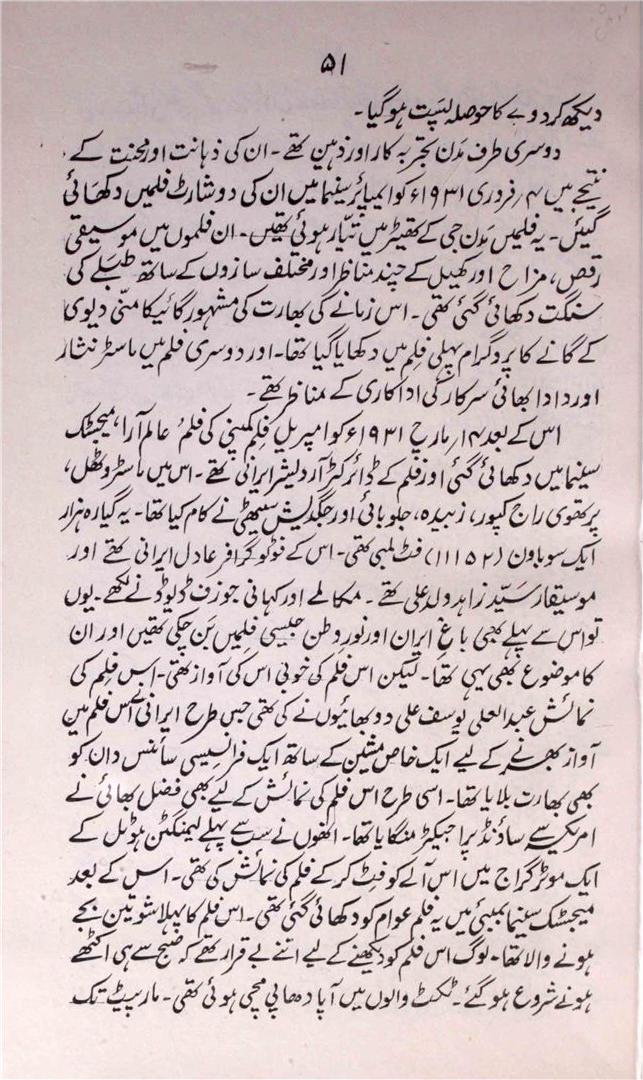 ۵۱
دیکھ کر دوے کا حوصلہ پست ہو گیا۔
دوسری طرف مدن تجربہ کار اور ذہین تھے۔ ان کی ذہانت اور محنت کے
نتیجے میں ۴؍ فروری ۱۹۳۱ء کو ایمپائر سینما میں ان کی دو شارٹ فلمیں دکھائی
گئیں۔ یہ فلمیں مدن جی کے تھیٹر میں تیار ہوئی تھیں۔ ان فلموں میں موسیقی
رقص، مزاح اور کھیل کے چند مناظر اور مختلف سازوں کے ساتھ طبلے کی
سنگت دکھائی گئی تھی۔ اس زمانے کی بھارت کی مشہور گائیکا منّی دیوی
کے گانے کا پروگرام پہلی فلم میں دکھایا گیا تھا۔ اور دوسری فلم میں ماسٹر نثار
اور دادا بھائی سرکار کی اداکاری کے مناظر تھے۔
اس کے بعد ۱۴؍ مارچ ۱۹۳۱ء کو امپریل فلم کمپنی کی فلم ’عالم آرا‘، میجیٹک
سینما میں دکھائی گئی اور فلم کے ڈائرکٹر آردیشر ایرانی تھے۔ اس میں ماسٹر وٹھل،
پرتھوی راج کپور، زبیدہ، جلو بائی اور جگدیش سیٹھی نے کام کیا تھا۔ یہ گیارہ ہزار
ایک سو باون (۱۱۱۵۲) فٹ لمبی تھی۔ اس کے فوٹو گرافر عادل ایرانی تھے اور
موسیقار سیّد زاہد ولد علی تھے۔ مکالمے اور کہانی جوزف ڈیوڈ نے لکھے۔ یوں
تو اس سے پہلے بھی باغِ ایران اور نورِ وطن جیسی فلمیں بن چکی تھیں اور ان
کا موضوع بھی یہی تھا۔ لیکن اس فلم کی خوبی اس کی آواز تھی۔ اس فلم کی
نمائش عبدالعلی یوسف علی دو بھائیوں نے کی تھی جس طرح ایرانی اس فلم میں
آواز بھرنے کے لیے ایک خاص مشین کے ساتھ ایک فرانسیسی سائنس دان کو
بھی بھارت بلایا تھا۔ اسی طرح اس فلم کی نمائش کے لیے بھی فضل بھائی نے
امریکہ سے ساؤنڈ پراجیکٹر منگایا تھا۔ انھوں نے سب سے پہلے لیمنگٹن ہوٹل کے
ایک موٹر گراج میں اس آلے کو فٹ کر کے فلم کی نمائش کی تھی۔ اس کے بعد
میجیٹک سینما بمبئی میں یہ فلم عوام کو دکھائی گئی تھی۔ اس فلم کا پہلا شو تین بجے
ہونے والا تھا۔ لوگ اس فلم کو دیکھنے کے لیے اتنے بے قرار تھے کہ صبح سے ہی اکٹھے
ہونے شروع ہو گئے۔ ٹکٹ والوں میں آپا دھاپی مچی ہوئی تھی۔ مارپیٹ تک